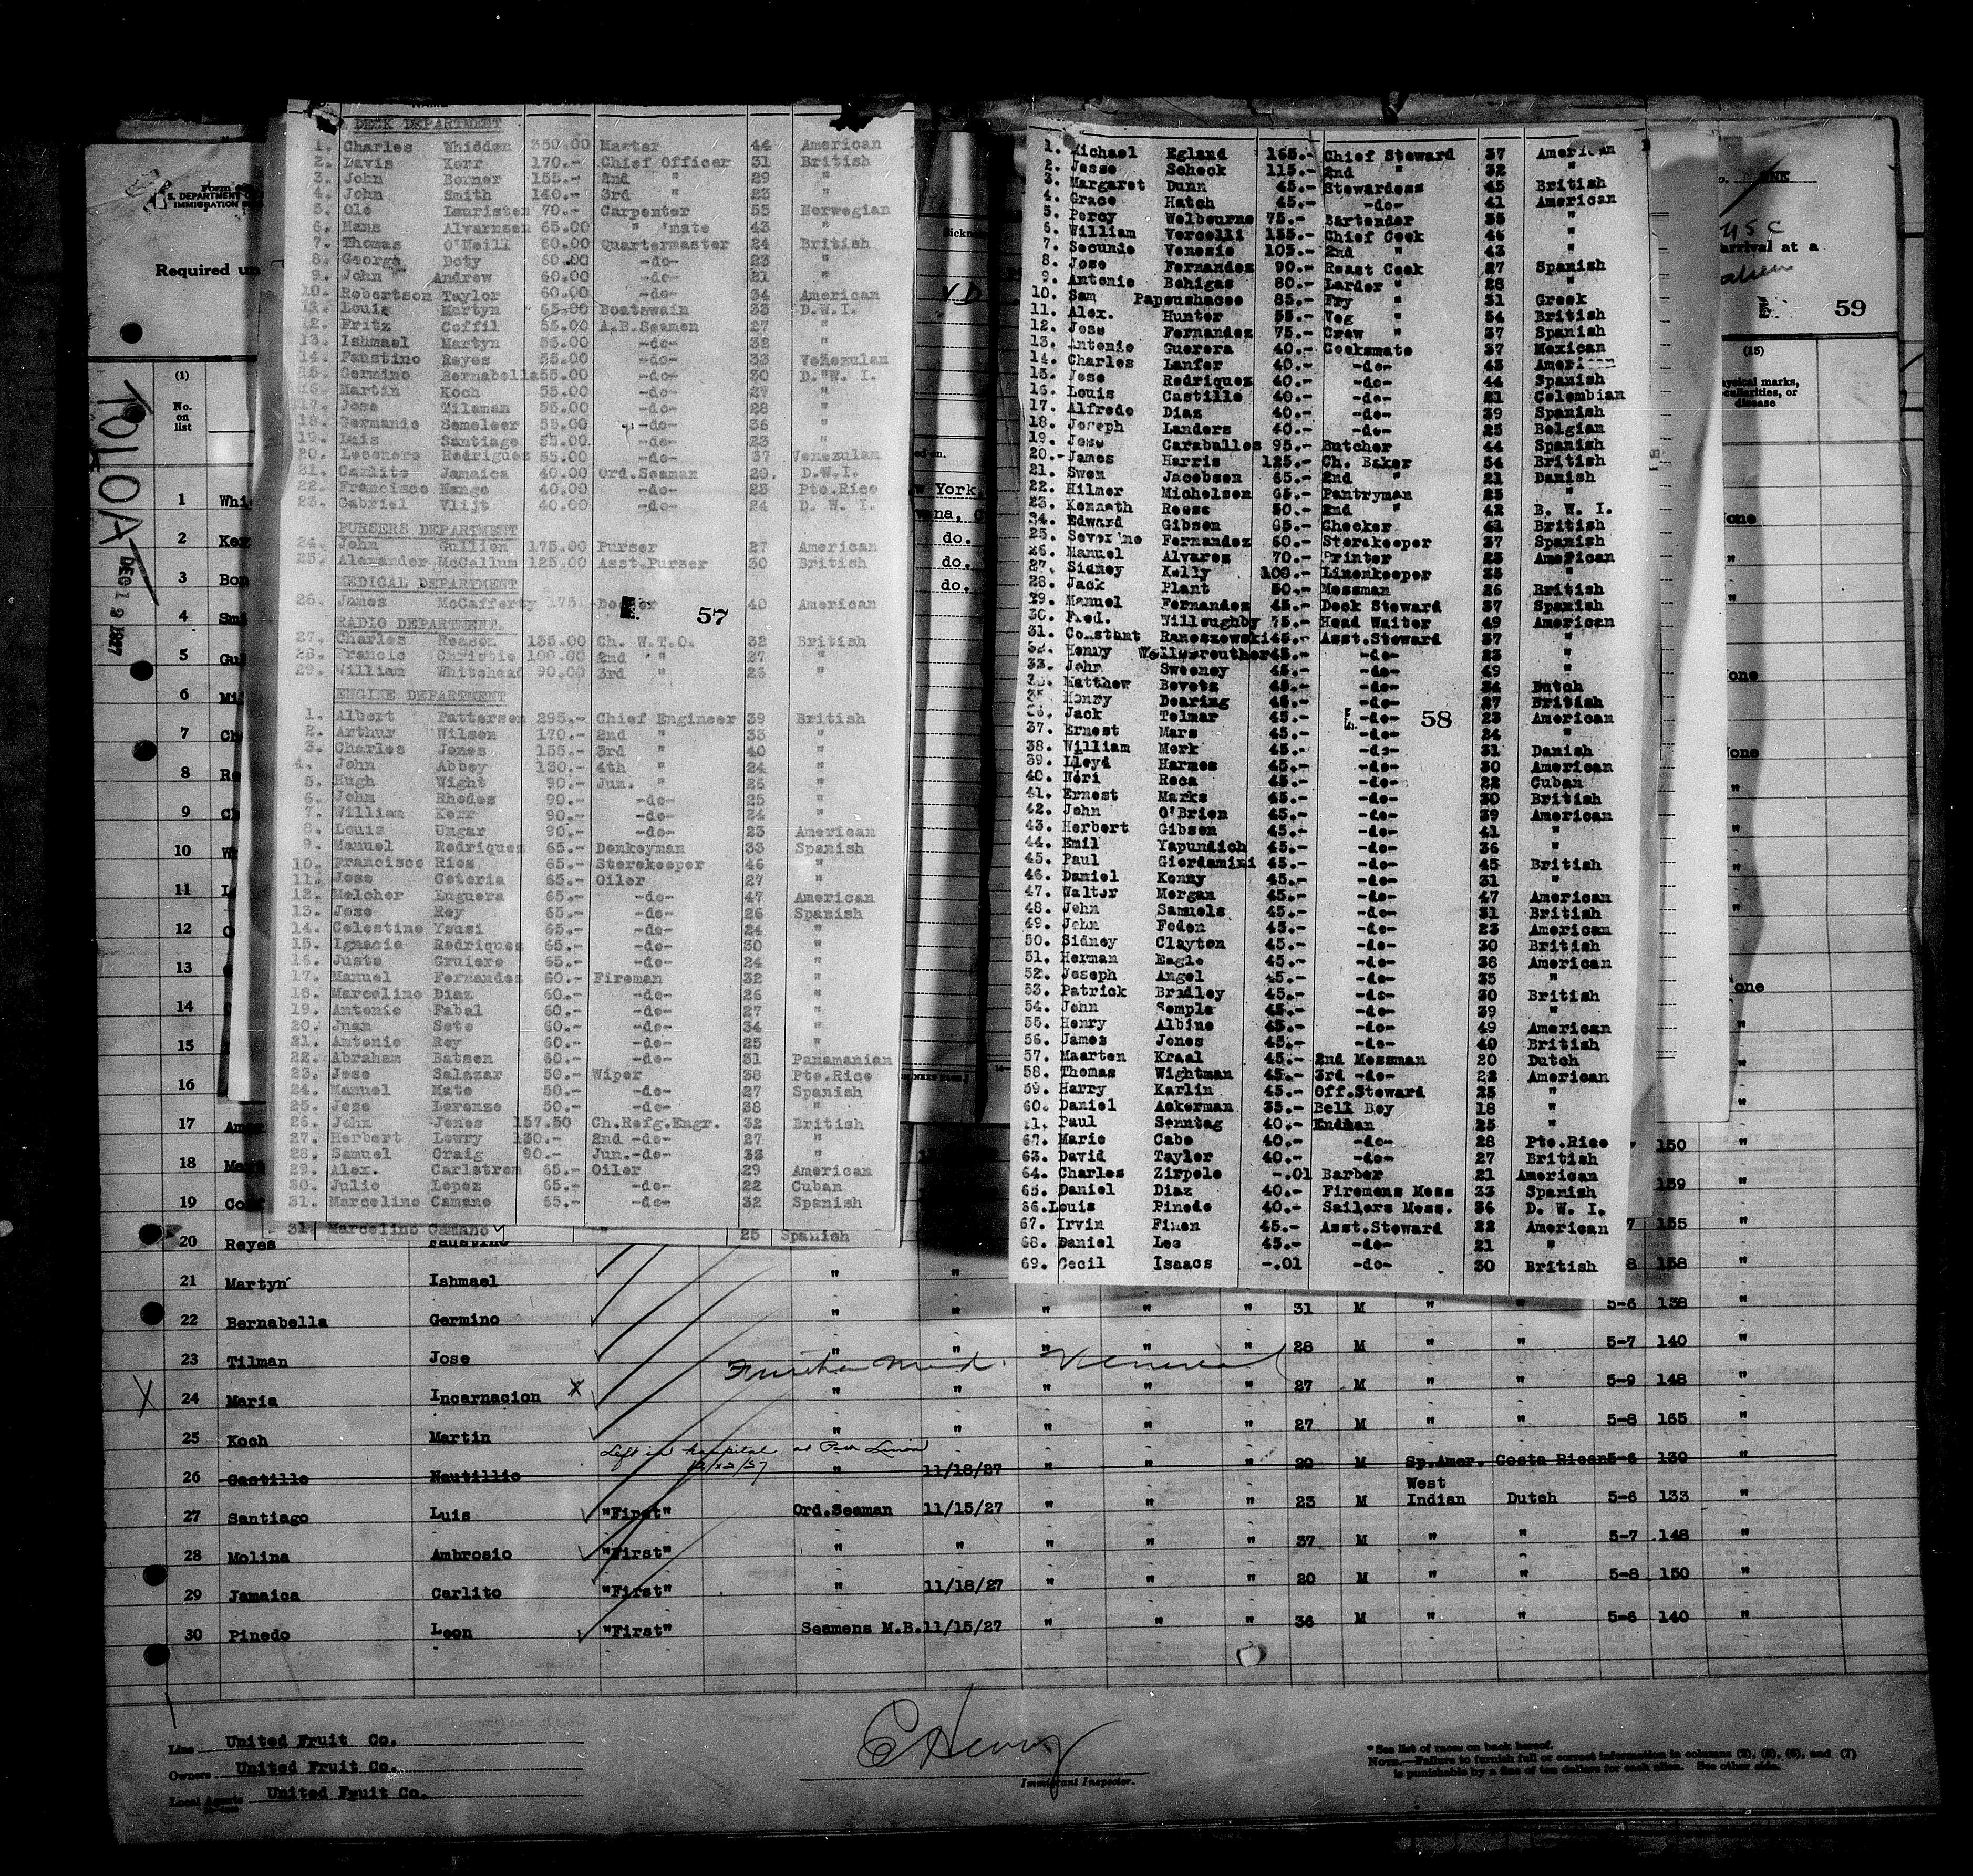 DECK DEPARTMENT
1. Charles Whidden 350.00 Master 44 American
2. Davis Kerr 170.- Chief Officer 31 British
3. John Borner 155.- 2nd " 29 "
4. John Smith 140.- 3rd " 23 "
5. Ole Lauristen 70.- Carpenter 55 Norwegian
6. Hans Alvarnsen 65.00 " 'mate 43 "
7. Thomas O'Neill 60.00 Quartermaster 24 British
8. George Doty 60.00 -do- 23 "
9. John Andrew 60.00 -do- 21 "
10. Robertson Taylor 60.00 -do- 34 American
11. Louis Martyn 65.00 Boatswain 33 D.W.I.
12. Fritz Coffil 55.00 A.B.Seamen 27 "
13. Ishmael Martyn 55.00 -do- 32 "
14. Faustino Reyes 55.00 -do- 33 Venezulan
15. Germino Bernabella 55.00 -do- 30 D. W. I.
16. Martin Koch 55.00 -do- 27 "
17. Jose Tilaman 55.00 -do- 28 "
18. Germanio Semeleer 55.00 -do- 36 "
19. Luis Santiago 55.00 -do- 23 "
20. Lesenore Rodrigues 55.00 -do- 37 Venezulan
21. Carlito Jamaica 40.00 Ord.Seaman 20. D.W.I.
22. Francisco Nange 40.00 -do- 23 Pto.Rico
23. Gabriel Vlijt 40.00 -do- 24 D. W. I.
PURSERS DEPARTMENT
24. John Gullion 175.00 Purser 27 American
25. Alexander McCallum 125.00 Asst.Purser 30 British
MEDICAL DEPARTMENT
26. James McCafferty 175. 40 American
57
RADIO DEPARTMENT.
27. Charles Reason 135.00 Ch. W.T.O. 32 British
28. Francis Christie 100.00 2nd " 27 "
29. William Whitehead 90.00 3rd " 26 "
ENGINE DEPARTMENT
1. Albert Patterson 295.- Chief Engineer 39 British
2. Arthur Wilson 170.- 2nd " 33 "
3. Charles Jones 155.- 3rd " 40 "
4. John Abbey 130.- 4th " 24 "
5. Hugh Wight 90.- Jun. " 26 "
6. John Rhodes 90.- -do- 25 "
7. William Kerr 90.- -do- 24 "
8. Louis Ungar 90.- -do- 23 American
9. Manuel Rodriques 65.- Donkeyman 33 Spanish
10. Francisco Rios 65.- Storekeeper 46 "
11. Jose Ceteria 65.- Oiler 27 "
12. Melcher Luguera 65.- -do- 47 American
13. Jose Rey 65.- -do- 26 Spanish
14. Celestino Ysusi 65.- -do- 24 "
15. Ignacio Rodriques 65.- -do- 30 "
16. Justo Gruiere 65.- -do- 24 "
17. Manuel Fernandes 60.- Fireman 32 "
18. Marcelino Diaz 60.- -do- 26 "
19. Antonio Fabal 60.- -do- 27 "
20. Juan Soto 60.- -do- 34 "
21. Antonio Rey 60.- -do- 25 "
22. Abraham Batsen 60.- -do- 31 Panamanian
23. Jose Salazar 50.- Wiper 38 Pto.Rico
24. Manuel Mato 50.- -do- 27 Spanish
25. Jose Lorenzo 50.- -do- 38 "
26. John Jones 157.50 Ch.Refg.Engr. 32 British
27. Herbert Lowry 130.- 2nd -do- 27 "
28. Samuel Craig 90.- Jun.-do- 33 "
29. Alex. Carlstrom 65.- Oiler 29 American
30. Julio Lopez 65.- -do- 22 Cuban
31. Marcelino Camano 65.- -do- 32 Spanish
31 Marcelino Camano 25 Spanish
1. Michael Egland 165.- Chief Steward 37 American
2. Jesse Scheck 115.- 2nd " 32 "
3. Margaret Dunn 45.- Stewardess 45 British
4. Grace Hatch 45.- -do- 41 American
5. Percy Welbourne 75.- Bartender 35 "
6. William Vercelli 155.- Chief Cook 46 "
7. Secundo Venezie 105.- 2nd " 43 "
8. Jose Fernandez 90.- Roast Cook 27 Spanish
9. Antonio Bohigas 80.- Larder " 28 "
10. Sam Papoushacee 85.- Fry " 31 Greek
11. Alex. Hunter 55.- Veg " 54 British
12. Jose Fernandez 75.- Crew " 37 Spanish
13. Antonio Guerera 40.- Cooksmate 37 Mexican
14. Charles Lanfer 40.- -do- 43 American
15. Jose Rodriquez 40.- -do- 44 Spanish
16. Louis Castillo 40.- -do- 21 Colombian
17. Alfredo Diaz 40.- -do- 39 Spanish
18. Joseph Landers 40.- -do- 25 Belgian
19. Jose Caraballes 95.- Butcher 44 Spanish
20.- James Harris 125.- Ch. Baker 54 British
21. Swen Jacobsen 65.- 2nd " 21 Danish
22. Hilmer Michelsen 65.- Pantryman 25 "
23. Kenneth Reese 50.- 2nd " 42 B. W. I.
24. Edward Gibson 65.- Checker 41 British
25. Severino Fernandez 60.- Storekeeper 37 Spanish
26. Manuel Alvarez 70.- Printer 23 American
27. Sidney Kelly 100.- Linenkeeper 35 "
28. Jack Plant 50.- Messman 26 British
29. Manuel Fernandez 45.- Deck Steward 37 Spanish
30. Fred. Willoughby 75.- Head Waiter 49 American
31. Constant Raneszewski 45.- Asst.Steward 37 "
32. Henry Wollmreuther 45.- -do- 23 "
33. John Sweeney 45.- -do- 49 "
Matthew Bevets 45.- -do- 34 Dutch
35. Henry Dearing 45.- -do- 27 British
36. Jack Telmar 45.- -do- 58 23 American
37. Ernest Mars 45.- -do- 24 "
38. William Mork 45.- -do- 31 Danish
39. Lloyd Harmes 45.- -do- 30 American
40. Neri Roca 45.- -do- 22 Cuban
41. Ernest Marks 45.- -do- 30 British
42. John O'Brien 45.- -do- 39 American
43. Herbert Gibson 45.- -do- 41 "
44. Emil Yapundich 45.- -do- 36 "
45. Paul Giordamini 45.- -do- 45 British
46. Daniel Kenny 45.- -do- 31 "
47. Walter Morgan 45.- -do- 47 American
48. John Samuels 45.- -do- 31 British
49. John Foden 45.- -do- 23 American
50. Sidney Clayton 45.- -do- 30 British
51. Herman Eagle 45.- -do- 38 American
52. Joseph Angel 45.- -do- 35 "
53. Patrick Bradley 45.- -do- 30 British
54. John Semple 45.- -do- 39 "
55. Henry Albino 45.- -do- 49 American
56. James Jones 45.- -do- 40 British
57. Maarten Kraal 45.- 2nd Messman 20 Dutch
58. Thomas Wightman 45.- 3rd -do- 22 American
59. Harry Karlin 45.- Off.Steward 25 "
60. Daniel Ackerman 35.- Bell Boy 18 "
61. Paul Sonntag 40.- Endman 25 "
62. Mario Cabo 40.- -do- 28 Pto.Rico
63. David Taylor 40.- -do- 27 British
64. Charles Zirpolo -.01 Barber 21 American
65. Daniel Diaz 40.- Firemens Mess 33 Spanish
66. Louis Pinedo 40.- Sailors Mess. 36 D. W. I.
67. Irvin Finen 45.- Asst.Steward 22 American
68. Daniel Lee 45.- -do- 21 "
69. Cecil Isaacs -.01 -do- 30 British
Form
S. DEPARTMENT O
IMMIGRATION
Required un
TOIOA
DEC 1 2 1927
(1)
No. on list
1 Whi
2 Ker
3 Bon
4 Smi
5 Gu
6 Mi
7 Ch
8 Re
9 Ch
10 W
11 L
12
13
14
15
16
17
18
19
V.D
w York,
vana, C
do.
do.
do.
ONE
arrival at a
59
(15)
ysical marks,
culiarities, or
disease
150 "
159 "
155 "
158 "
20 Reyes Faustino
21 Martyn Ishmael " "
22 Bernabella Germino " " " " " 31 M " " 5-6 138 "
23 Tilman Jose " " " " " 28 M " " 5-7 140 "
24 Maria Incarnacion X " " " " " 27 M " " 5-9 148 "
25 Koch Martin " " " " " 27 M " " 5-8 165 "
Left in hospital at Port Limon
26 Castillo Nautillio " 11/18/27 " " " 20 M Sp.Amer. Costa Rican 5-6 130 "
27 Santiago Luis "First" Ord.Seaman 11/15/27 " " " 23 M West Indian Dutch 5-6 133 "
28 Molina Ambrosio "First" " " " " " 37 M " " 5-7 148 "
29 Jamaica Carlito "First" " 11/18/27 " " " 20 M " " 5-8 150 "
30 Pinedo Leon "First" Seamens M.B. 11/15/27 " " " 36 M " " 5-6 140 "
Line United Fruit Co.
Owners United Fruit Co.
Local Agents United Fruit Co.
E Henry
Immigrant Inspector.
*See list of races on back hereof.
NOTE.—Failure to furnish full or correct information in columns (2), (5), (6), and (7)
is punishable by a fine of ten dollars for each alien. See other side.